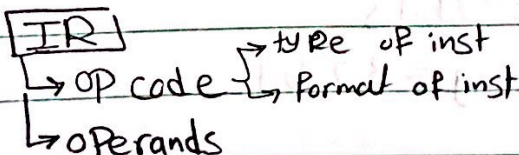 IR
op code type of inst
format of inst
operands